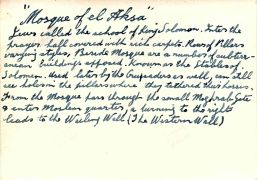 "Mosque of el Aksa"
Jews called the school of King Solomon. Enter the
prayer hall covered with rich carpets. Rows of Pillars
varying styles. Beside Mosque are a number of subter-
anean buildings opposed. Known as the Stables of
Solomon. Used later by the Crusaders as well, can still
see holes in the pillars where they tethered their horses.
From the Mosque pass through the small Gate
& enter Moslem quarter, a turning to the right
leads to the Wailing Wall (The Western Wall)